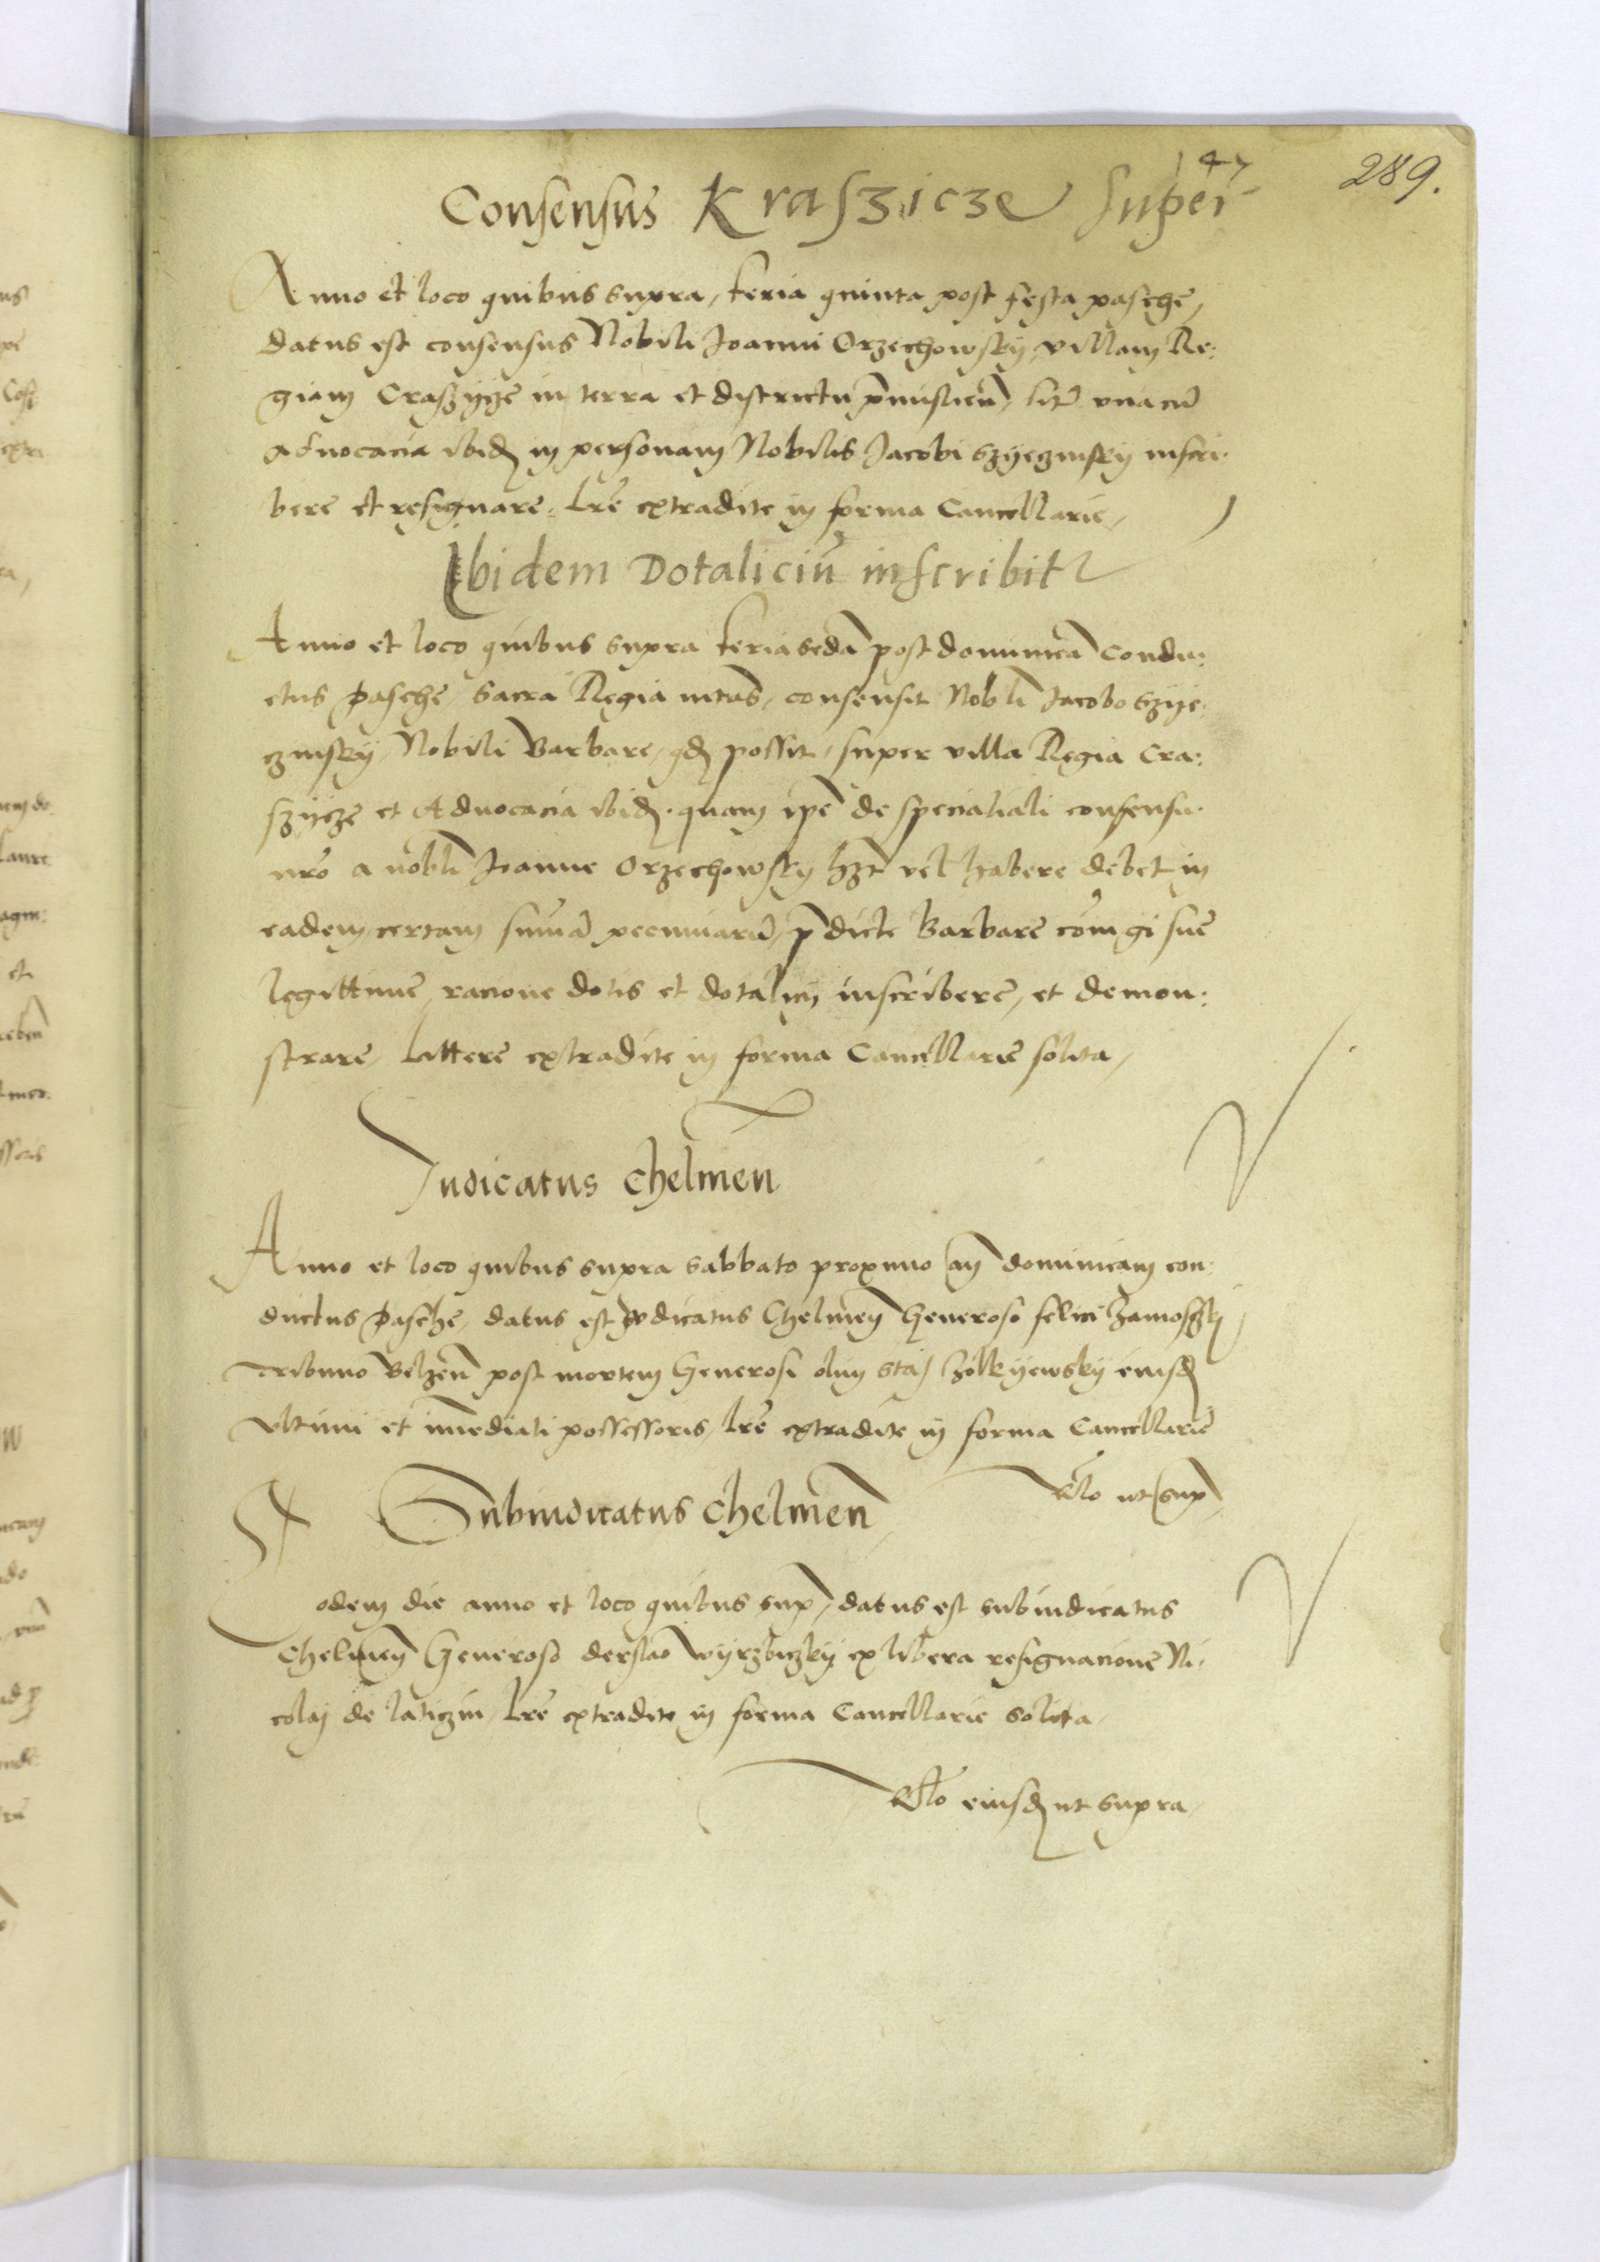 147
289.
Consensus Kraszicze super
Anno et loco quibus supra, feria quinta post festa pasche,
datus est consensus Nobili Joanni Orzechowsky, villam Re:
giam Craszycze in terra et districtu p̄mislien̄, sitā unacū
advocacia ibid in personam Nobilis Jacobi Szyeczinsky inscri.
bere et resignare. Lr̄e extradite in forma Cancellarie,
Ibidem Dotaliciū inscribit
Anno et loco quibus supra feria sedā post dominicā Condu:
ctus Pasche, Sacra Regia mtas, consensit Nobli Jacobo Szye,
czinsky Nobili Barbare, qd possit, super villa Regia Cra:
szycze et Advocacia ibid. quam ipe de speciali consensu.
nr̄o a nobli Joanne Orzechowsky hzt vel habere debet in
eadem, certam sum̄ā pecuniariā, p̄dicte Barbare con̄gi sue
legittime, racione dotis et dotalicij inscribere, et demon:
strare, Littere extradite in forma Cancellarie solita,
Judicatus Chelmen̄
Anno et loco quibus supra sabbato proximo an̄ dominicam con:
ductus Pasche, datus est Judicatus Chelmen̄ Generoso felici Zamoszky
Tribuno Belzen̄ post mortem Generosi olim Staj Zolkyewsky eiusd
ultimi et im̄ediati possessoris, Lr̄e extradite in forma Cancellarie
Rlo ut sup
Subiudicatus Chelmen̄
Eodem die anno et loco quibus sup, datus est subiudicatus
Chelmen̄ Generoso derslao Wyrzbiczky ex libera resignacione Ni,
colaj de laticzin, Lr̄e extradite in forma Cancellarie solita,
Rlo eiusd ut supra,